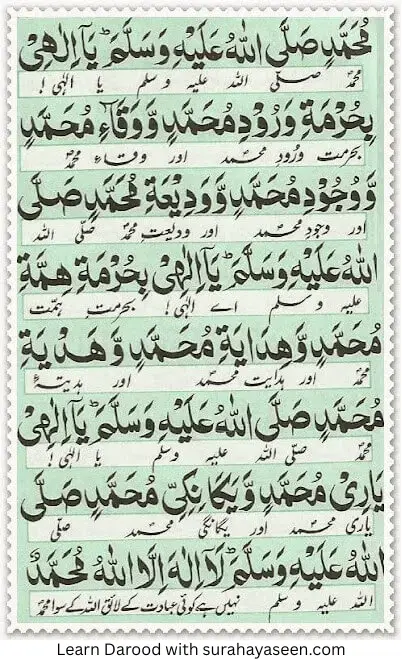 مُحَمَّدٍ صَلَّى اللهُ عَلَيْهِ وَسَلَّمَ ؕ يَآ اِلٰهِىْ
محمدؐ صلی اللہ علیہ وسلم یا الٰہی!
بِحُرْمَةِ وُرُوْدِ مُحَمَّدٍ وَّوَقَآءِ مُحَمَّدٍ
بحرمت ورود محمد اور وقاء محمدؐ
وَّوُجُوْدِ مُحَمَّدٍ وَّوَدِيْعَةِ مُحَمَّدٍ صَلَّى
اور وجود محمد اور ودیعت محمدؐ صلی اللہ
اللهُ عَلَيْهِ وَسَلَّمَ ؕ يَآ اِلٰهِىْ بِحُرْمَةِ هِمَّةِ
علیہ وسلم اے الٰہی! بحرمت ہمت
مُحَمَّدٍ وَّهِدَايَةِ مُحَمَّدٍ وَّهَدْيَةِ
محمدؐ اور ہدایت محمد اور ہدیۂ
مُحَمَّدٍ صَلَّى اللهُ عَلَيْهِ وَسَلَّمَ ؕ يَآ اِلٰهِىْ
محمدؐ صلی اللہ علیہ وسلم یا الٰہی!
يَارِىْ مُحَمَّدٍ وَّيَگَانِگِىْ مُحَمَّدٍ صَلَّى
یاری محمد اور یگانگی محمد صلی
اللهُ عَلَيْهِ وَسَلَّمَ ؕ لَآ اِلٰهَ اِلَّا اللهُ مُحَمَّدٌ
اللہ علیہ وسلم نہیں ہے کوئی عبادت کے لائق اللہ کے سوا محمدؐ
Learn Darood with surahayaseen.com